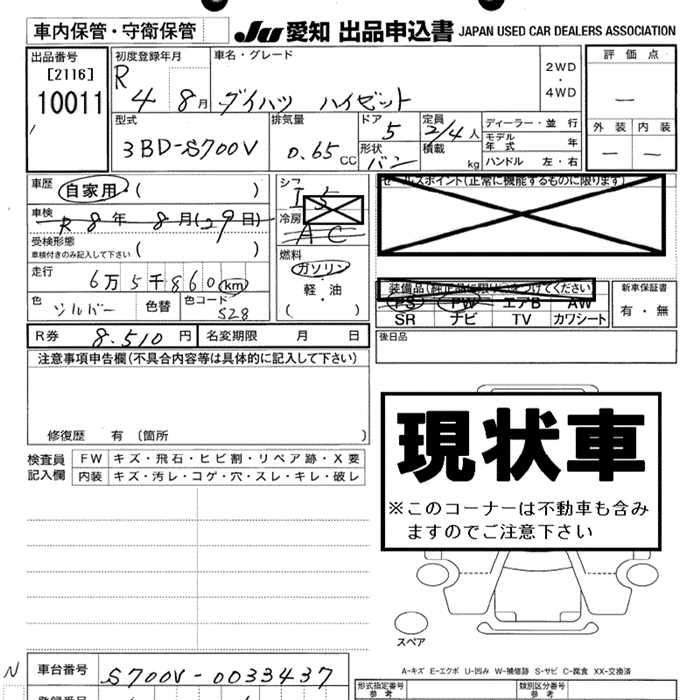 車内保管・守衛保管
JU 愛知 出品申込書 JAPAN USED CAR DEALERS ASSOCIATION
出品番号
[2116]
10011
初度登録年月
R 4 8月
車名・グレード
ダイハツ ハイゼット
2WD
・
4WD
評価点
—
型式
3BD-S700V
排気量
0.65 CC
ドア
5
形状
バン
定員
2/4人
積載
kg
ディーラー・並行
モデル年式 年
ハンドル 左・右
外装 内装
— —
車歴
自家用・( )
車検
R 8年 8月(29日)
受検形態
車検付きのみ記入して下さい ( )
走行
6万5千860km
色
シルバー
色替
色コード
S28
シフ
I5
冷房
AC
燃料
ガソリン
・
軽・油
( )
セールスポイント(正常に機能するものに限ります)
装備品(純正品に限り○をつけてください)
PS PW エアB AW
SR ナビ TV カワシート
新車保証書
有・無
R券 8,510円
名変期限 月 日
後日品
注意事項申告欄(不具合内容等は具体的に記入して下さい)
修復歴 有〔箇所 〕
検査員記入欄
FW キズ・飛石・ヒビ割・リペア跡・X要
内装 キズ・汚レ・コゲ・穴・スレ・キレ・破レ
現状車
※このコーナーは不動車も含み
ますのでご注意下さい
スペア
A-キズ E-エクボ U-凹み W-補修跡 S-サビ C-腐食 XX-交換済
N
車台番号
S700V-0033437
形式指定番号
参考
類別区分番号
参考